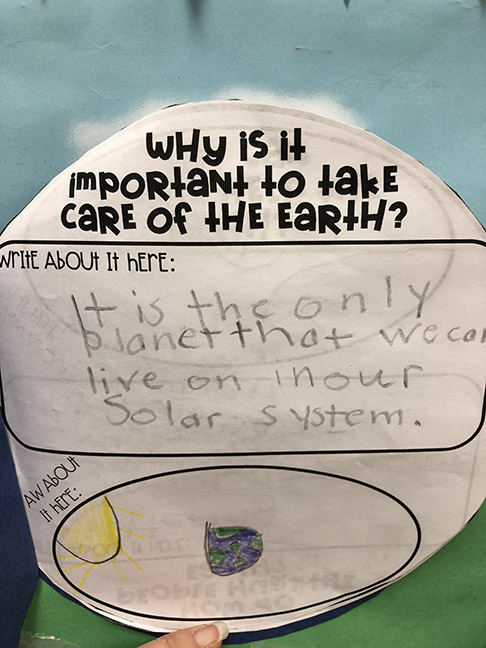 WHY is it
important to take
care of the earth?
Write About it here:
It is the only
planet that we can
live on in our
Solar system.
aw About
it here: